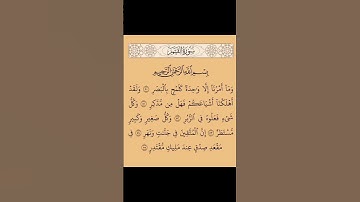 سورة القمر
بِسْمِ اللَّهِ الرَّحْمَٰنِ الرَّحِيمِ
وَمَا أَمْرُنَا إِلَّا وَاحِدَةٌ كَلَمْحٍ بِالْبَصَرِ ۝ وَلَقَدْ
أَهْلَكْنَا أَشْيَاعَكُمْ فَهَلْ مِن مُّدَّكِرٍ ۝ وَكُلُّ
شَيْءٍ فَعَلُوهُ فِي الزُّبُرِ ۝ وَكُلُّ صَغِيرٍ وَكَبِيرٍ
مُّسْتَطَرٌ ۝ إِنَّ الْمُتَّقِينَ فِي جَنَّاتٍ وَنَهَرٍ ۝ فِي
مَقْعَدِ صِدْقٍ عِندَ مَلِيكٍ مُّقْتَدِرٍ ۝